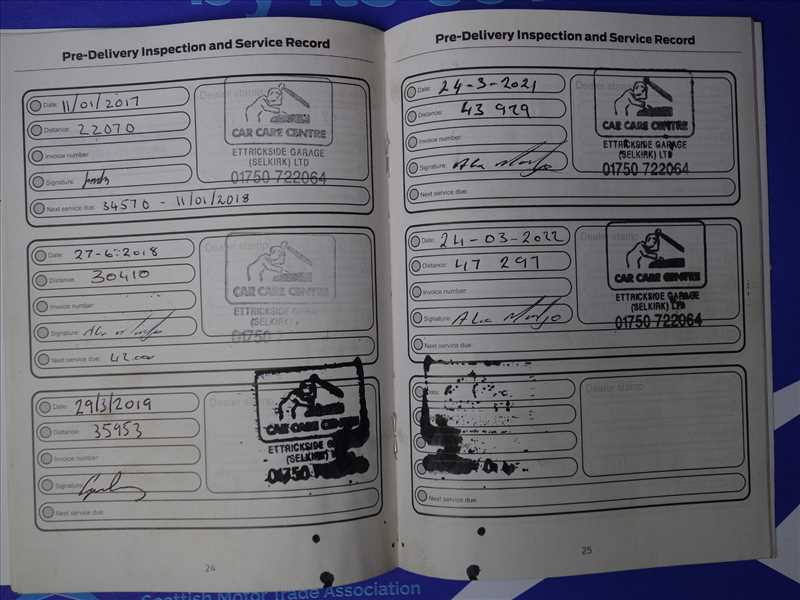 Pre-Delivery Inspection and Service Record
Date: 11/01/2017
Dealer stamp
CAR CARE CENTRE
Distance: 22070
ETTRICKSIDE GARAGE
(SELKIRK) LTD
01750 722064
Invoice number:
Signature:
Next service due: 34570 - 11/01/2018
Date: 27-6-2018
Dealer stamp
CAR CARE CENTRE
Distance: 30410
ETTRICKSIDE GARAGE
(SELKIRK)
01750 722064
Invoice number:
Signature:
Next service due: 42000
Date: 29/3/2019
Dealer stamp
CAR CARE CENTRE
Distance: 35953
ETTRICKSIDE
(SELKIRK)
01750
Invoice number:
Signature:
Next service due:
24
Pre-Delivery Inspection and Service Record
Date: 24-3-2021
Dealer stamp
CAR CARE CENTRE
Distance: 43 929
ETTRICKSIDE GARAGE
(SELKIRK) LTD
01750 722064
Invoice number:
Signature:
Next service due:
Date: 24-03-2022
Dealer stamp
CAR CARE CENTRE
Distance: 47 297
ETTRICKSIDE GARAGE
(SELKIRK) LTD
01750 722064
Invoice number:
Signature:
Next service due:
Dealer stamp
Next service due:
25
Scottish Motor Trade Association